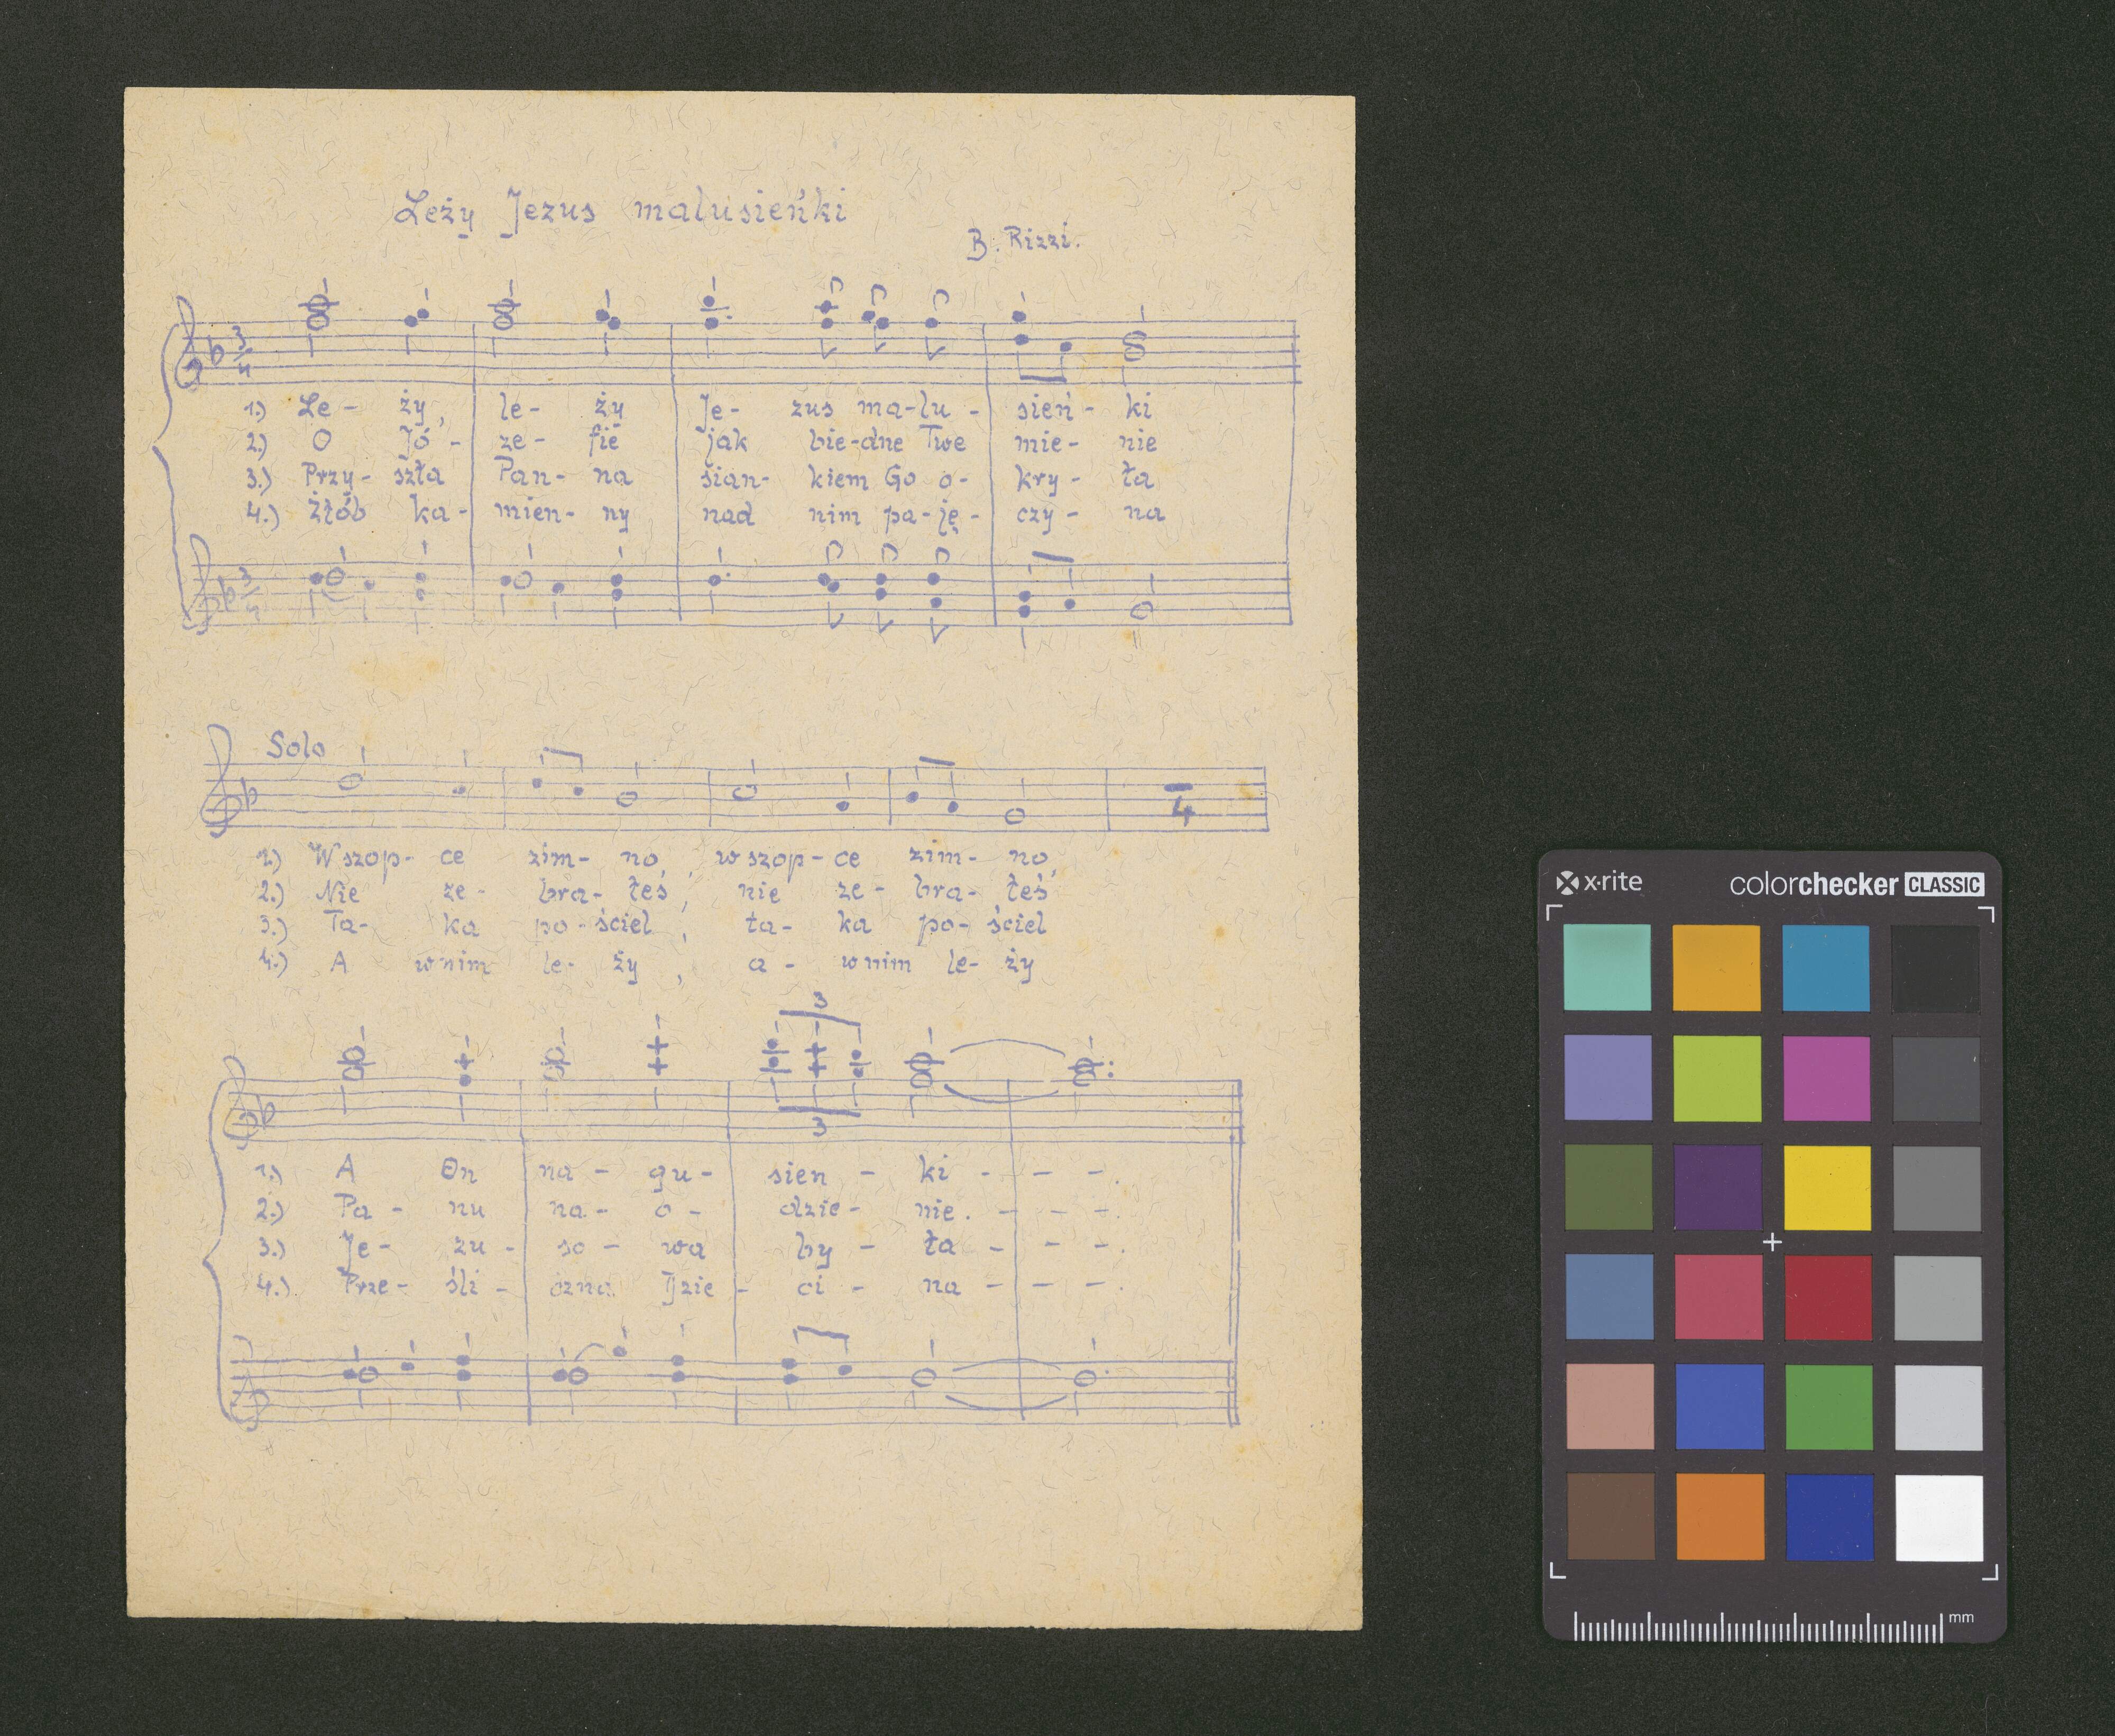 Leży Jezus malusieńki
B. Rizzi.
3/4
1.) Le - ży, le - ży Je - zus ma-lu - sień - ki
2.) O Jó - ze - fie jak bie-dne Twe mie - nie
3.) Przy - szła Pan - na sian - kiem Go o - kry - ła
4.) Żłób ka - mien - ny nad nim pa - ję - czy - na
3/4
Solo
4
1.) W szop - ce zim - no, w szop - ce zim - no
2.) Nie ze - bra - łeś, nie ze - bra - łeś
3.) Ta - ka po - ściel, ta - ka po - ściel
4.) A w nim le - ży, a - w nim le - ży
3
3
1.) A On na - gu - sien - ki - - -.
2.) Pa - nu na - o - dzie - nie. - - -.
3.) Je - zu - so - wa by - ła - - -.
4.) Prze - śli - czna Dzie - ci - na - - -.
x·rite colorchecker CLASSIC
mm